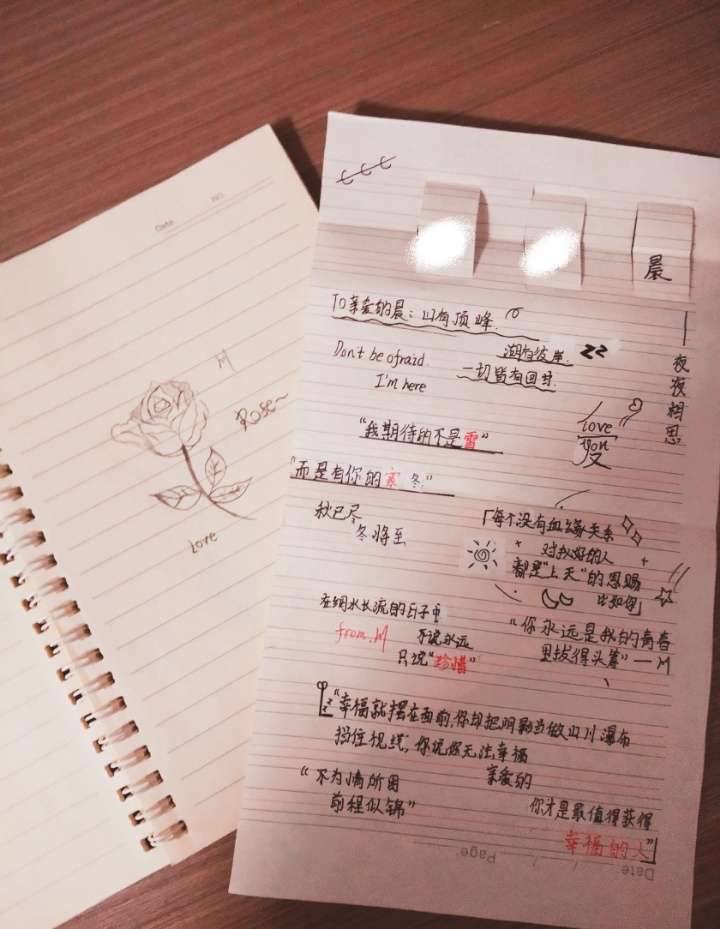 Date
NO.
M
Rose~
love
晨
To亲爱的晨：山有顶峰.
湖有彼岸.
Don't be afraid.
I'm here
一切皆有回甘.
夜夜相思
love
you
"我期待的不是雪"
"而是有你的寒冬"
秋已尽
冬将至
「每个没有血缘关系
对我好的人
都是"上天"的恩赐
比如你」
在细水长流的日子中
from.M
不说永远
只说"珍惜"
"你永远是我的青春
里拔得头筹"——M
"幸福就摆在面前,你却把阴影当做山川瀑布
挡住视线,你说你无法幸福
"不为情所困
前程似锦"
亲爱的
你才是最值得获得
幸福的人
Page
Date